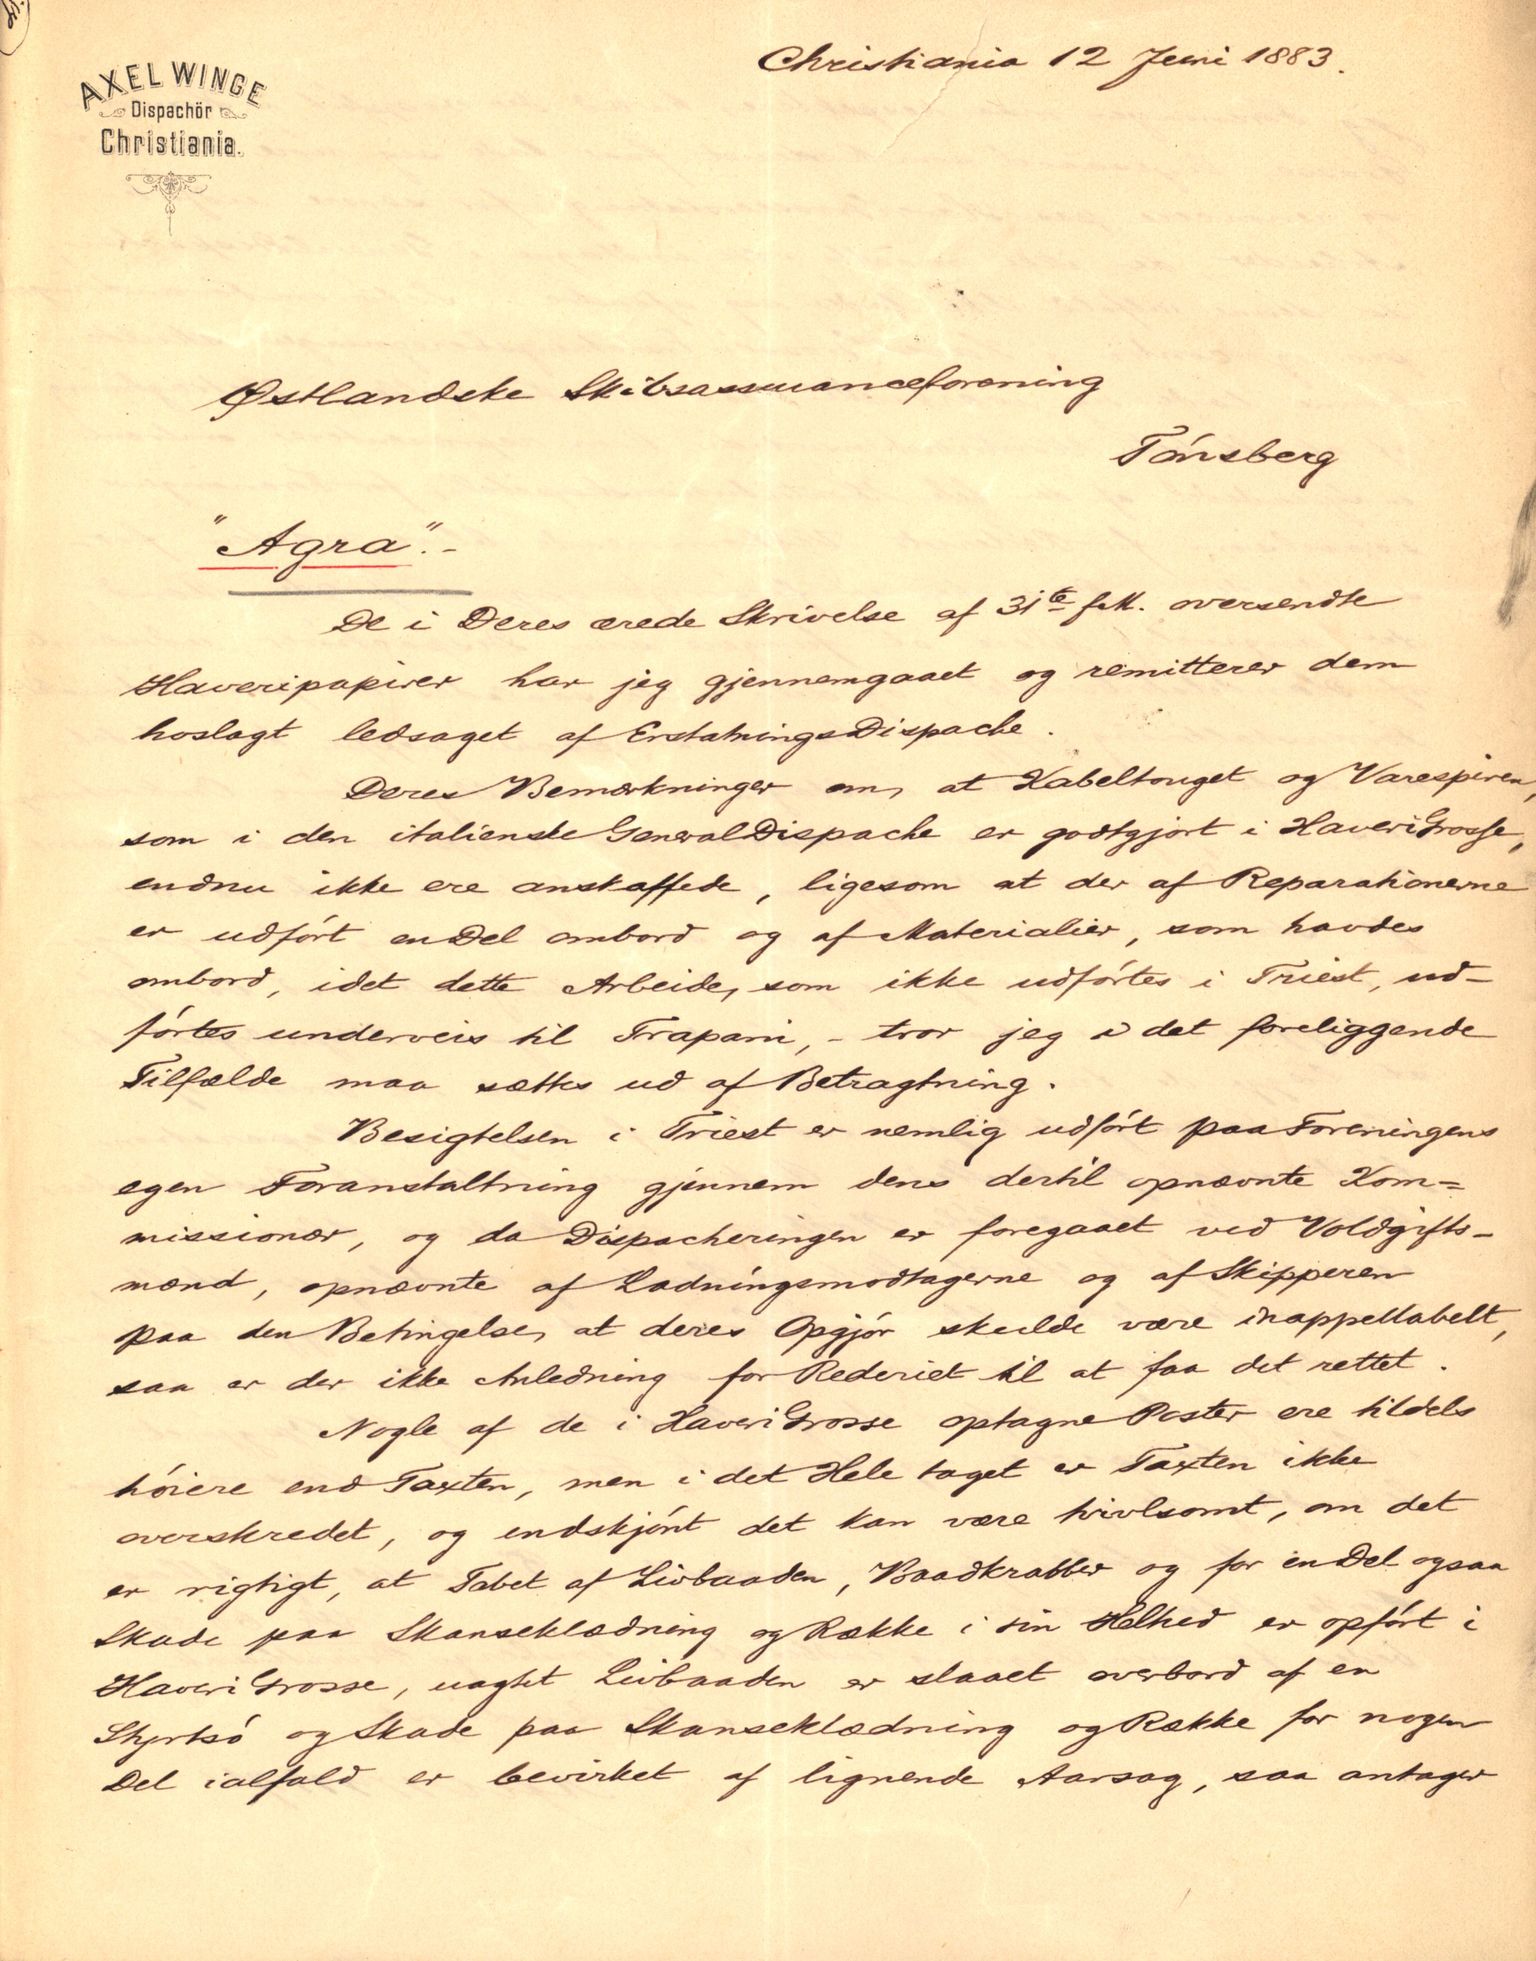 AXEL WINGE
Dispachör
Christiania.
Christiania 12 Juni 1883.
Østlandske Skibsassuranceforening
Tónsberg
"Agra".-
De i Deres ærede Skrivelse af 31te f.M. oversendte
Haveripapirer har jeg gjennemgaaet og remitterer dem
hoslagt ledsaget af ErstatningsDispache.
Deres Bemærkninger om, at Kabeltouget og Varespiren,
som i den italienske GeneralDispache er godtgjort i HaveriGrosse,
endnu ikke ere anskaffede, ligesom at der af Reparationerne
er udfórt en Del ombord og af Materialier, som havdes
ombord, idet dette Arbeide, som ikke udfórtes i Triest, ud-
fórtes underveis til Trapani, - tror jeg i det foreliggende
Tilfælde maa sættes ud af Betragtning.
Besigtelsen i Triest er nemlig udfórt paa Foreningens
egen Foranstaltning gjennem dens dertil opnævnte Kom=
missionær, og da Dispacheringen er foregaaet ved Voldgifts-
mænd, opnævnte af Ladningsmodtagerne og af Skipperen
paa den Betingelse, at deres Opgjór skulde være inappellabelt,
saa er der ikke Anledning for Rederiet til at faa det rettet.
Nogle af de i HaveriGrosse optagne Poster ere tildels
hóiere end Taxten, men i det Hele taget er Taxten ikke
overskredet, og endskjónt det kan være tvivlsomt, om det
er rigtigt, at Tabet af Livbaaden, Baadkrabber og for en Del ogsaa
Skade paa Skanseklædning og Række i sin Helhed er opfórt i
HaveriGrosse, uagtet Livbaaden er slaaet overbord af en
Styrtsó og Skade paa Skanseklædning og Række for nogen
Del ialfald er bevirket af lignende Aarsag, saa antager